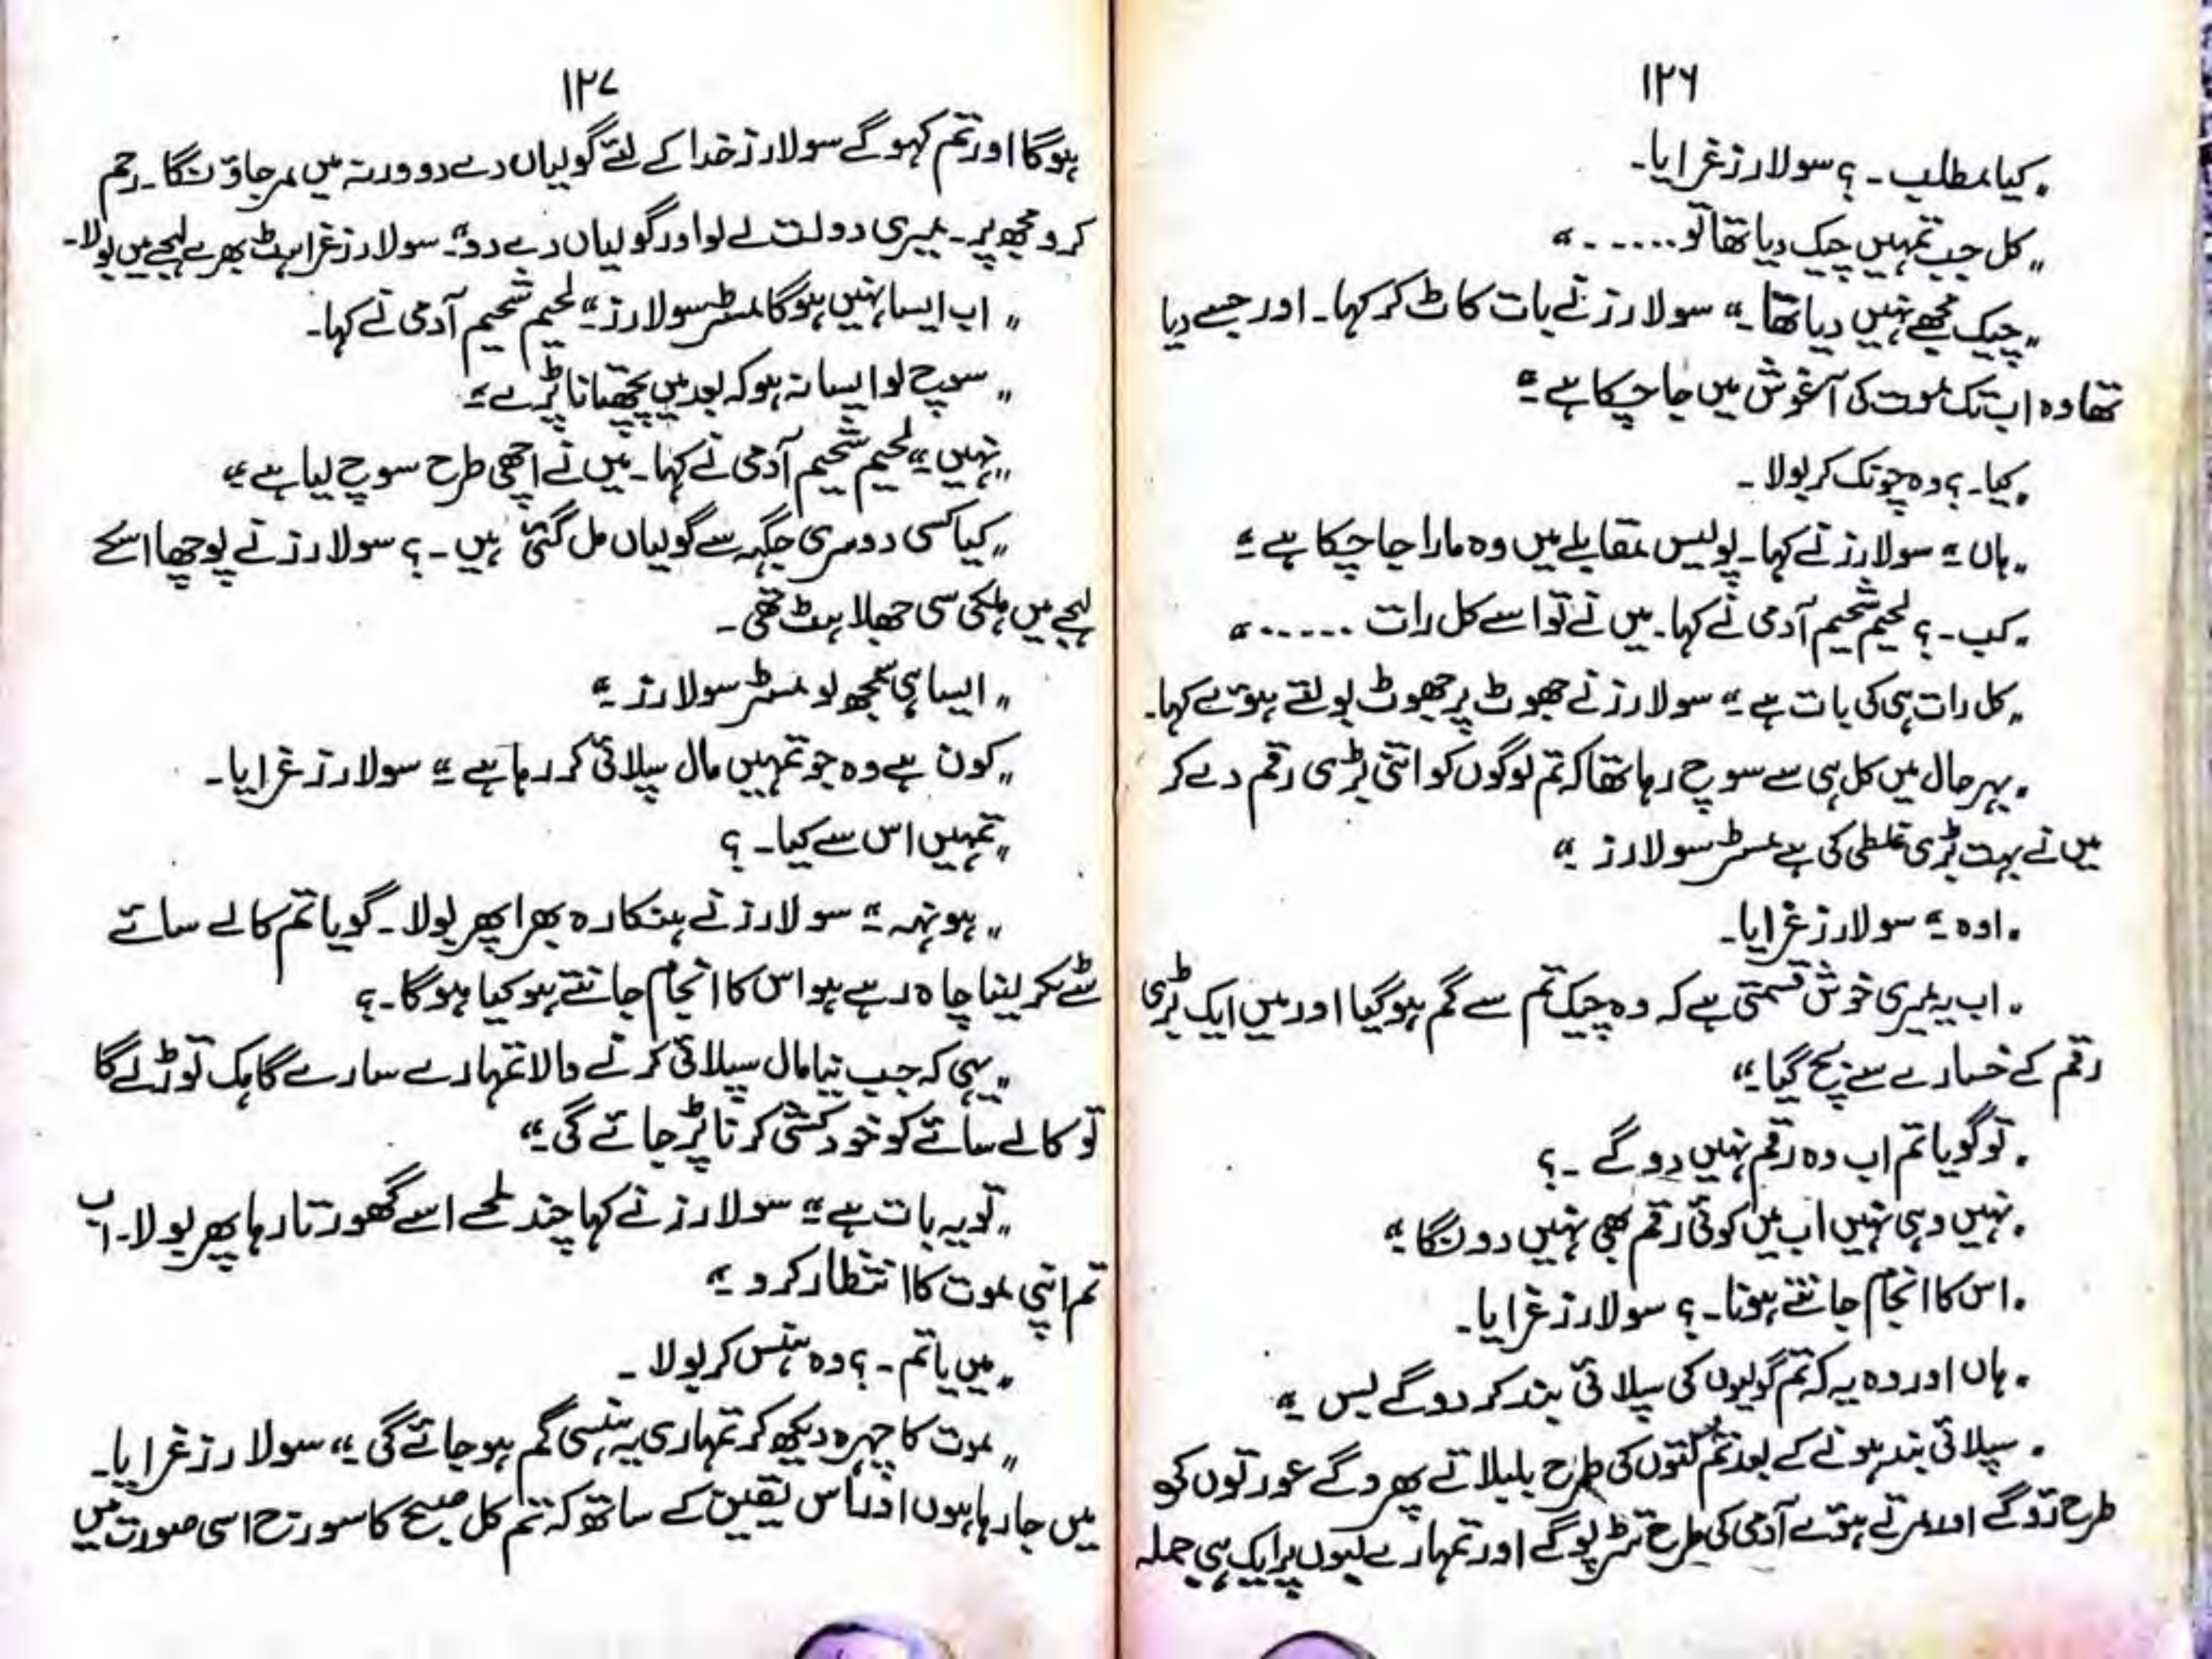 ۱۲۶
"کیا مطلب۔ ؟ سولارز غرایا۔
"کل جب تمہیں چیک دیا تھا تو......"
"چیک مجھے نہیں دیا تھا۔" سولارز نے بات کاٹ کر کہا۔ اور جسے دیا
تھا وہ اب تک موت کی آغوش میں جا چکا ہے۔"
"کیا۔ ؟ وہ چونک کر بولا۔
"ہاں۔" سولارز نے کہا۔ پولیس مقابلے میں وہ مارا جا چکا ہے۔"
"کب۔ ؟ لحیم شحیم آدمی نے کہا۔ میں نے تو اسے کل رات ......"
"کل رات ہی کی بات ہے۔" سولارز نے جھوٹ پر جھوٹ بولتے ہوئے کہا۔
"بہر حال میں کل ہی سے سوچ رہا تھا کہ تم لوگوں کو اتنی بڑی رقم دے کر
میں نے بہت بڑی غلطی کی ہے مسٹر سولارز۔"
"اوہ۔" سولارز غرایا۔
"اب یہ میری خوش قسمتی ہے کہ وہ چیک تم سے گم ہو گیا اور میں ایک بڑی
رقم کے خسارے سے بچ گیا۔"
"تو گویا تم اب وہ رقم نہیں دو گے ۔؟
"نہیں وہی نہیں اب میں کوئی رقم بھی نہیں دونگا۔"
"اس کا انجام جانتے ہونا۔ ؟ سولارز غرایا۔
"ہاں اور وہ یہ کہ تم گولیوں کی سپلائی بند کر دو گے بس۔"
"سپلائی بند ہونے کے بعد تم کتوں کی طرح بلبلاتے پھرو گے عورتوں کی
طرح رؤ گے اور مرتے ہوئے آدمی کی طرح تڑپو گے اور تمہارے لبوں پر ایک ہی جملہ
۱۲۷
ہو گا اور تم کہو گے سولارز خدا کے لئے گولیاں دے دو ورنہ میں مر جاؤنگا۔ رحم
کرو مجھ پر۔ میری دولت لے لو اور گولیاں دے دو۔" سولارز غراہٹ بھرے لہجے میں بولا۔
"اب ایسا نہیں ہو گا مسٹر سولارز۔" لحیم شحیم آدمی نے کہا۔
"سوچ لو ایسا نہ ہو کہ بعد میں پچھتانا پڑے۔"
"نہیں۔" لحیم شحیم آدمی نے کہا۔ میں نے اچھی طرح سوچ لیا ہے۔"
"کیا کسی دوسری جگہہ سے گولیاں مل گئی ہیں ۔ ؟ سولارز نے پوچھا اسکے
لہجے میں ہلکی سی جھلاہٹ تھی۔
"ایسا ہی سمجھ لو مسٹر سولارز۔"
"کون ہے وہ جو تمہیں مال سپلائی کر رہا ہے۔" سولارز غرایا۔
"تمہیں اس سے کیا۔ ؟
"ہونہہ۔" سولارز نے ہنکارہ بھرا پھر بولا۔ گویا تم کالے سائے
سے ٹکر لینا چاہ رہے ہو اس کا انجام جانتے ہو کیا ہو گا۔ ؟
"یہی کہ جب نیا مال سپلائی کرنے والا تمہارے سارے گاہک توڑ لے گا
تو کالے سائے کو خودکشی کرنا پڑ جائے گی۔"
"تو یہ بات ہے۔" سولارز نے کہا چند لمحے اسے گھورتا رہا پھر بولا۔ اب
تم اپنی موت کا انتظار کرو۔"
"میں یا تم ۔ ؟ وہ ہنس کر بولا ۔
"موت کا چہرہ دیکھ کر تمہاری یہ ہنسی گم ہو جائے گی۔" سولارز غرایا۔
میں جا رہا ہوں اور اس یقین کے ساتھ کہ تم کل صبح کا سورج اسی صورت میں